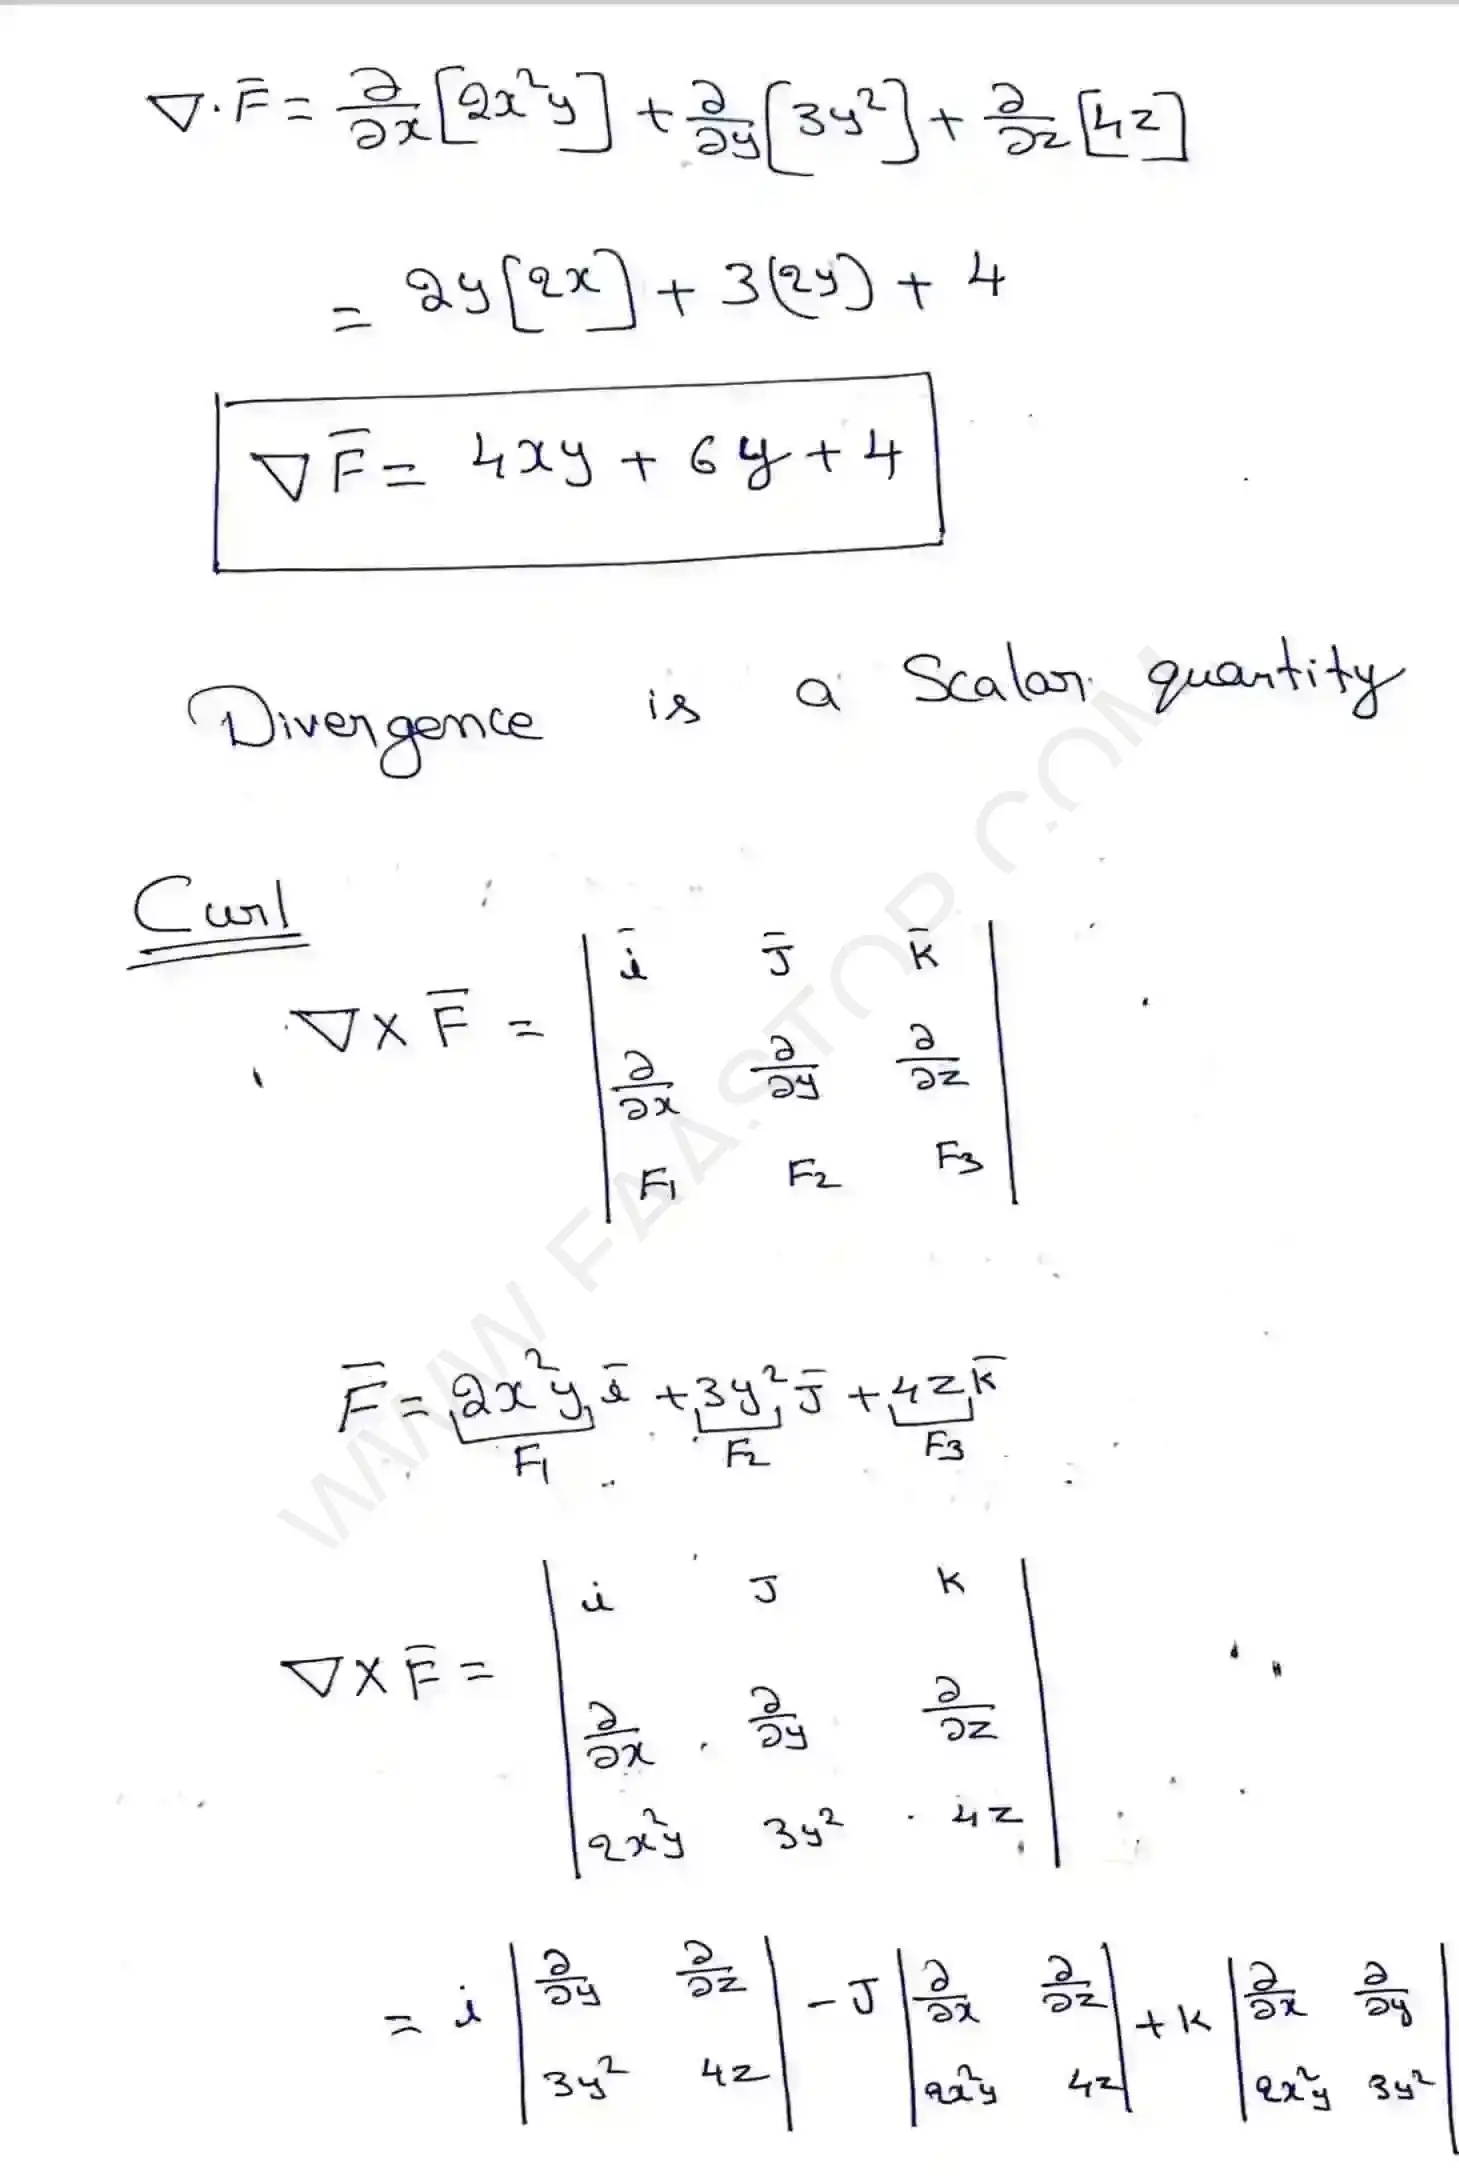 ∇·F̄ = ∂/∂x [2x²y] + ∂/∂y [3y²] + ∂/∂z [4z]
= 2y[2x] + 3(2y) + 4
∇F̄ = 4xy + 6y + 4
Divergence is a Scalar quantity
Curl
∇×F̄ = | ī J̄ K̄ |
| ∂/∂x ∂/∂y ∂/∂z |
| F₁ F₂ F₃ |
F̄ = 2x²y ī + 3y² J̄ + 4z K̄
F₁ F₂ F₃
∇×F̄ = | i J K |
| ∂/∂x ∂/∂y ∂/∂z |
| 2x²y 3y² 4z |
= i | ∂/∂y ∂/∂z | - J | ∂/∂x ∂/∂z | + K | ∂/∂x ∂/∂y |
| 3y² 4z | | 2x²y 4z | | 2x²y 3y² |
WWW.FAASTOP.COM